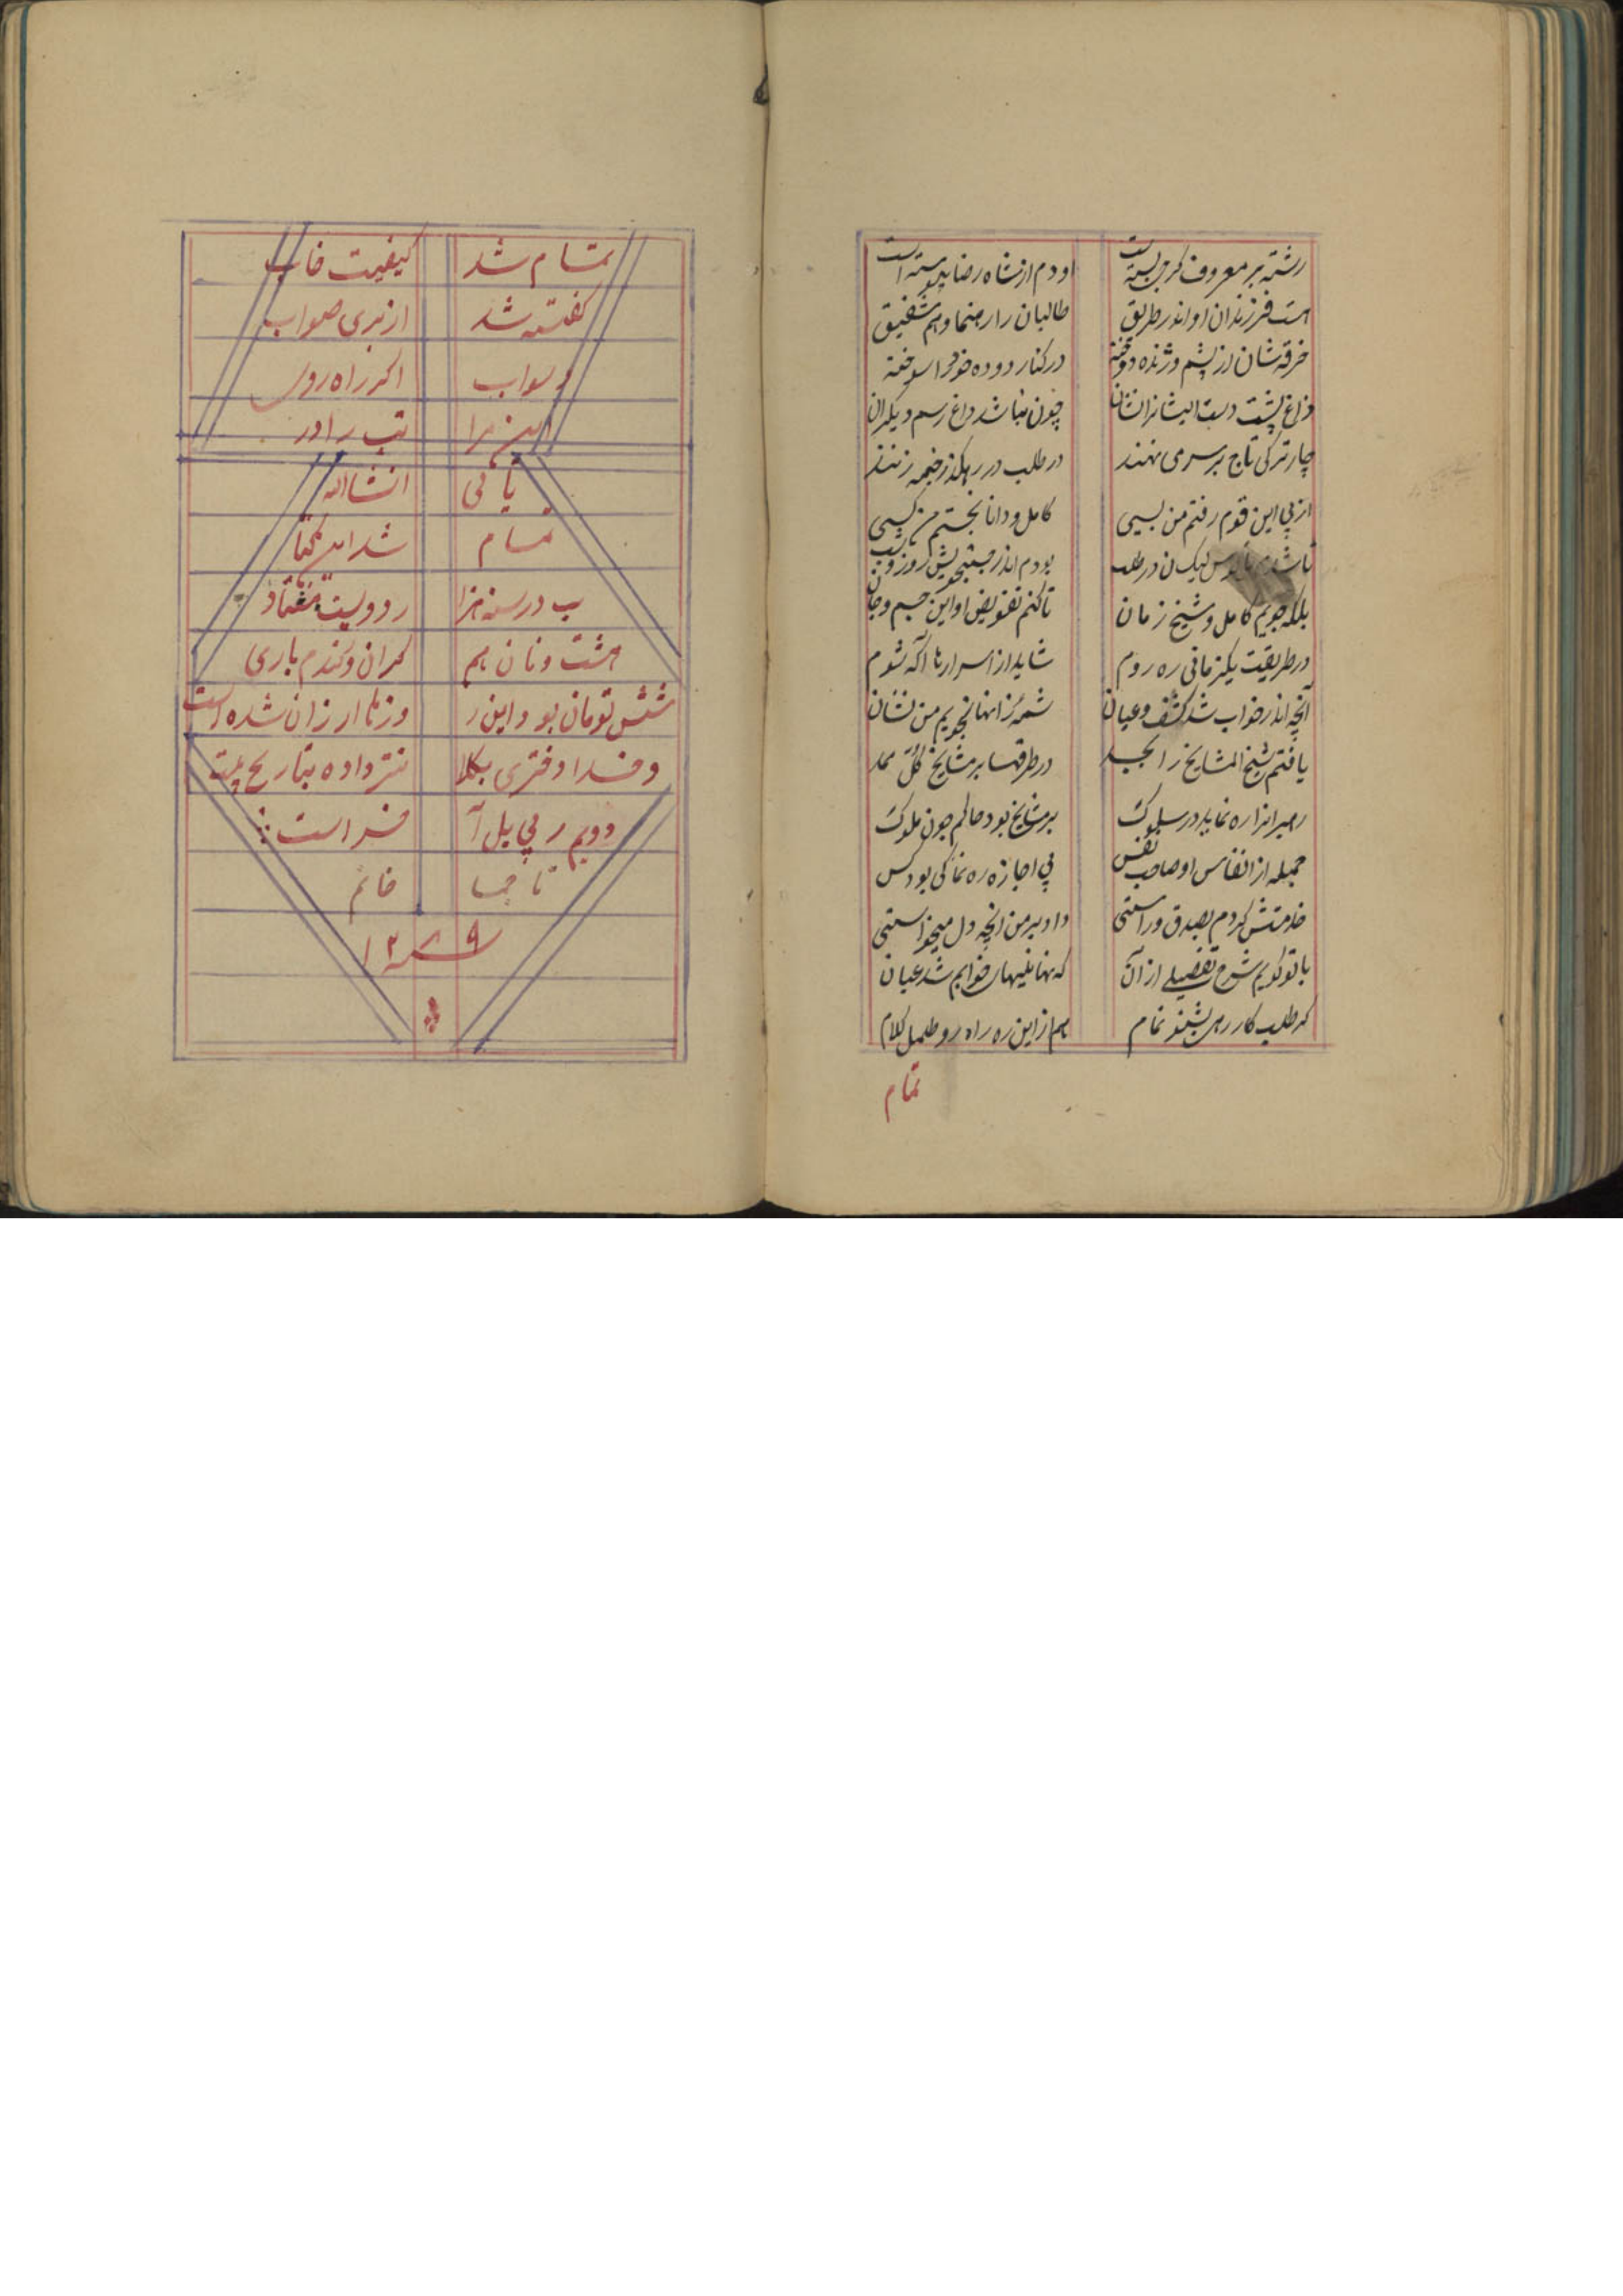 رشته بر معروف کرخی بسته است او دم از شاه رضا پیوسته است
هست فرزندان او اندر طریق طالبان را رهنما و هم شفیق
خرقه شان از پشم و ژنده دوخته در کنار دوده خود را سوخته
داغ پشت دست ایشانرا نشان چون نباشد داغ رسم دیگران
چار ترکی تاج بر سر می نهند در طلب در رهگذر خیمه زنند
از پی این قوم رفتم من بسی کامل و دانا بجستم من کسی
در طلب بودم اندر جستجویش روز و شب
بلکه جویم کامل و شیخ زمان تا کنم تفویض او این جسم و جان
در طریقت یکزمانی ره روم شاید از اسرارها آگه شوم
آنچه اندر خواب شد کشف و عیان شمه زانها نجویم من نشان
یافتم شیخ المشایخ را بجد در طرقها بر مشایخ کل ممد
رهبرانرا ره نماید در سلوک بر مشایخ بود حاکم چون ملوک
جمله از انفاس او صاحب نفس بی اجازه ره نما کی بود کس
خدمتش کردم بصدق و راستی داد بر من انچه دل میخواستی
با تو گویم شرح تفصیلی از آن که نهانیهای خوابم شد عیان
گر طلب کار رهی بشنو تمام هم از این ره راه رو طلمل کلام
تمام
تمام شد کیفیت خاب
گفته شد از بری صواب
و سواب اگر راه روی
این مرا تب را در
یابی انشاالله
تمام شد این کتا
ب در سنه هزا ر دویست هفتاد
هشت و نان هم گران و گندم باری
شش تومان بود و این ر وزها ارزان شده است
و خدا دفتری بکلا نتر داده بتاریخ بیست
دویم ر بی یل آ خر است
تا جما خانم
سنه ۱۲۷۹